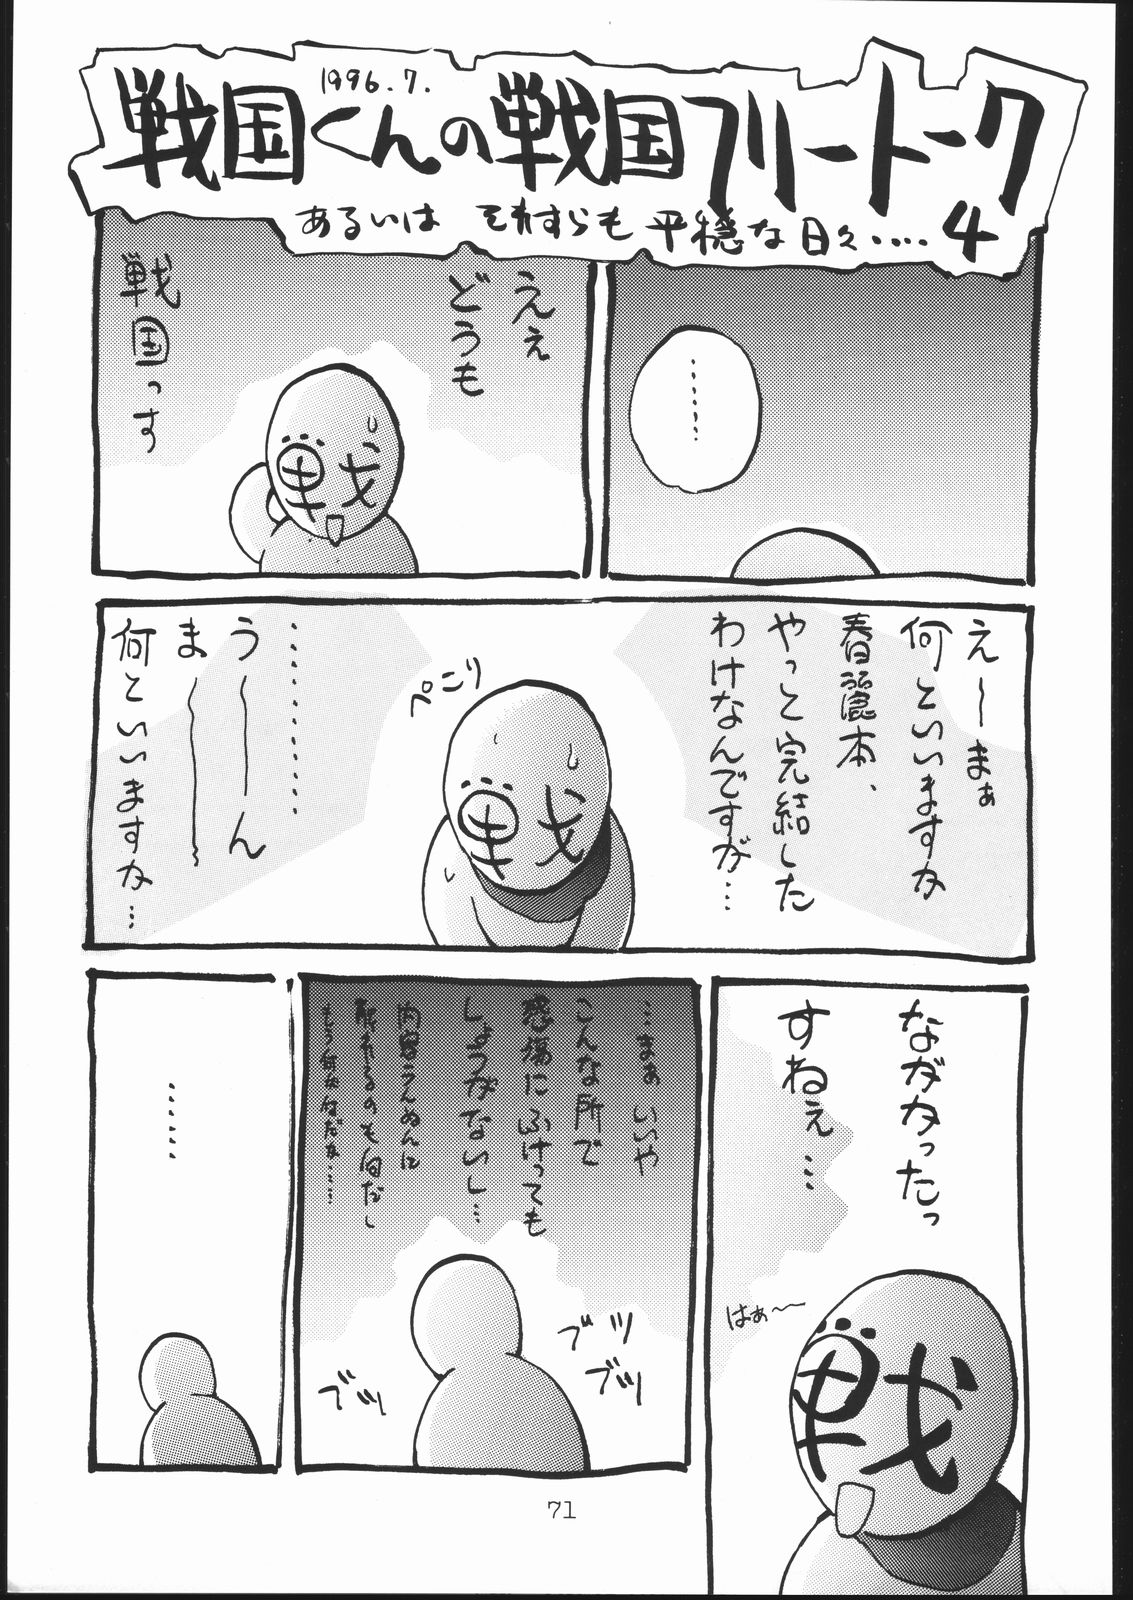 1996.7.
戦国くんの戦国フリートーク
あるいは それすらも 平穏な日々‥‥ 4
‥‥‥
ええ
どうも
戦国っす
戦
え〜まぁ
何といいますか
春麗本、
やっと完結した
わけなんですが…
ぺこり
戦
‥‥‥‥‥
う――ん
ま〜〜
何といいますか…
ながかったっ
すねえ…
はぁ〜
戦
…まあいいや
こんな所で
感傷にふけっても
しょうがないし…
内容うんぬんに
ブツ
ブツ
ブツ
‥‥‥
71